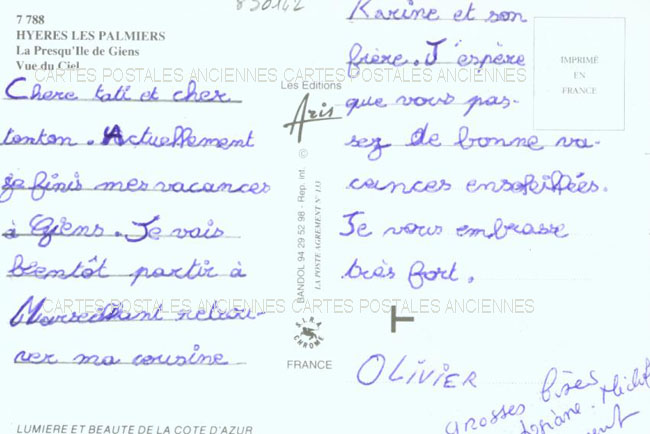 830142
7 788
HYERES LES PALMIERS
La Presqu'Ile de Giens
Vue du Ciel
CARTES POSTALES ANCIENNES CARTES POSTALES ANCIENNES
Chere tati et cher
tonton. Actuellement
je finis mes vacances
à Giens. Je vais
bientôt partir à
Marseillant retrou-
ver ma cousine
Karine et son
frère. J'espère
que vous pas-
sez de bonne va-
cances ensoleillées.
Je vous embrasse
très fort.
CARTES POSTALES ANCIENNES CARTES POSTALES ANCIENNES
OLIVIER
Grosses bises
Les Editions
Aris
BANDOL 94 29 52 98 - Rep. int. ©
LA POSTE AGREMENT N° 113
AIRA
CHROME
FRANCE
IMPRIMÉ
EN
FRANCE
LUMIERE ET BEAUTE DE LA COTE D'AZUR